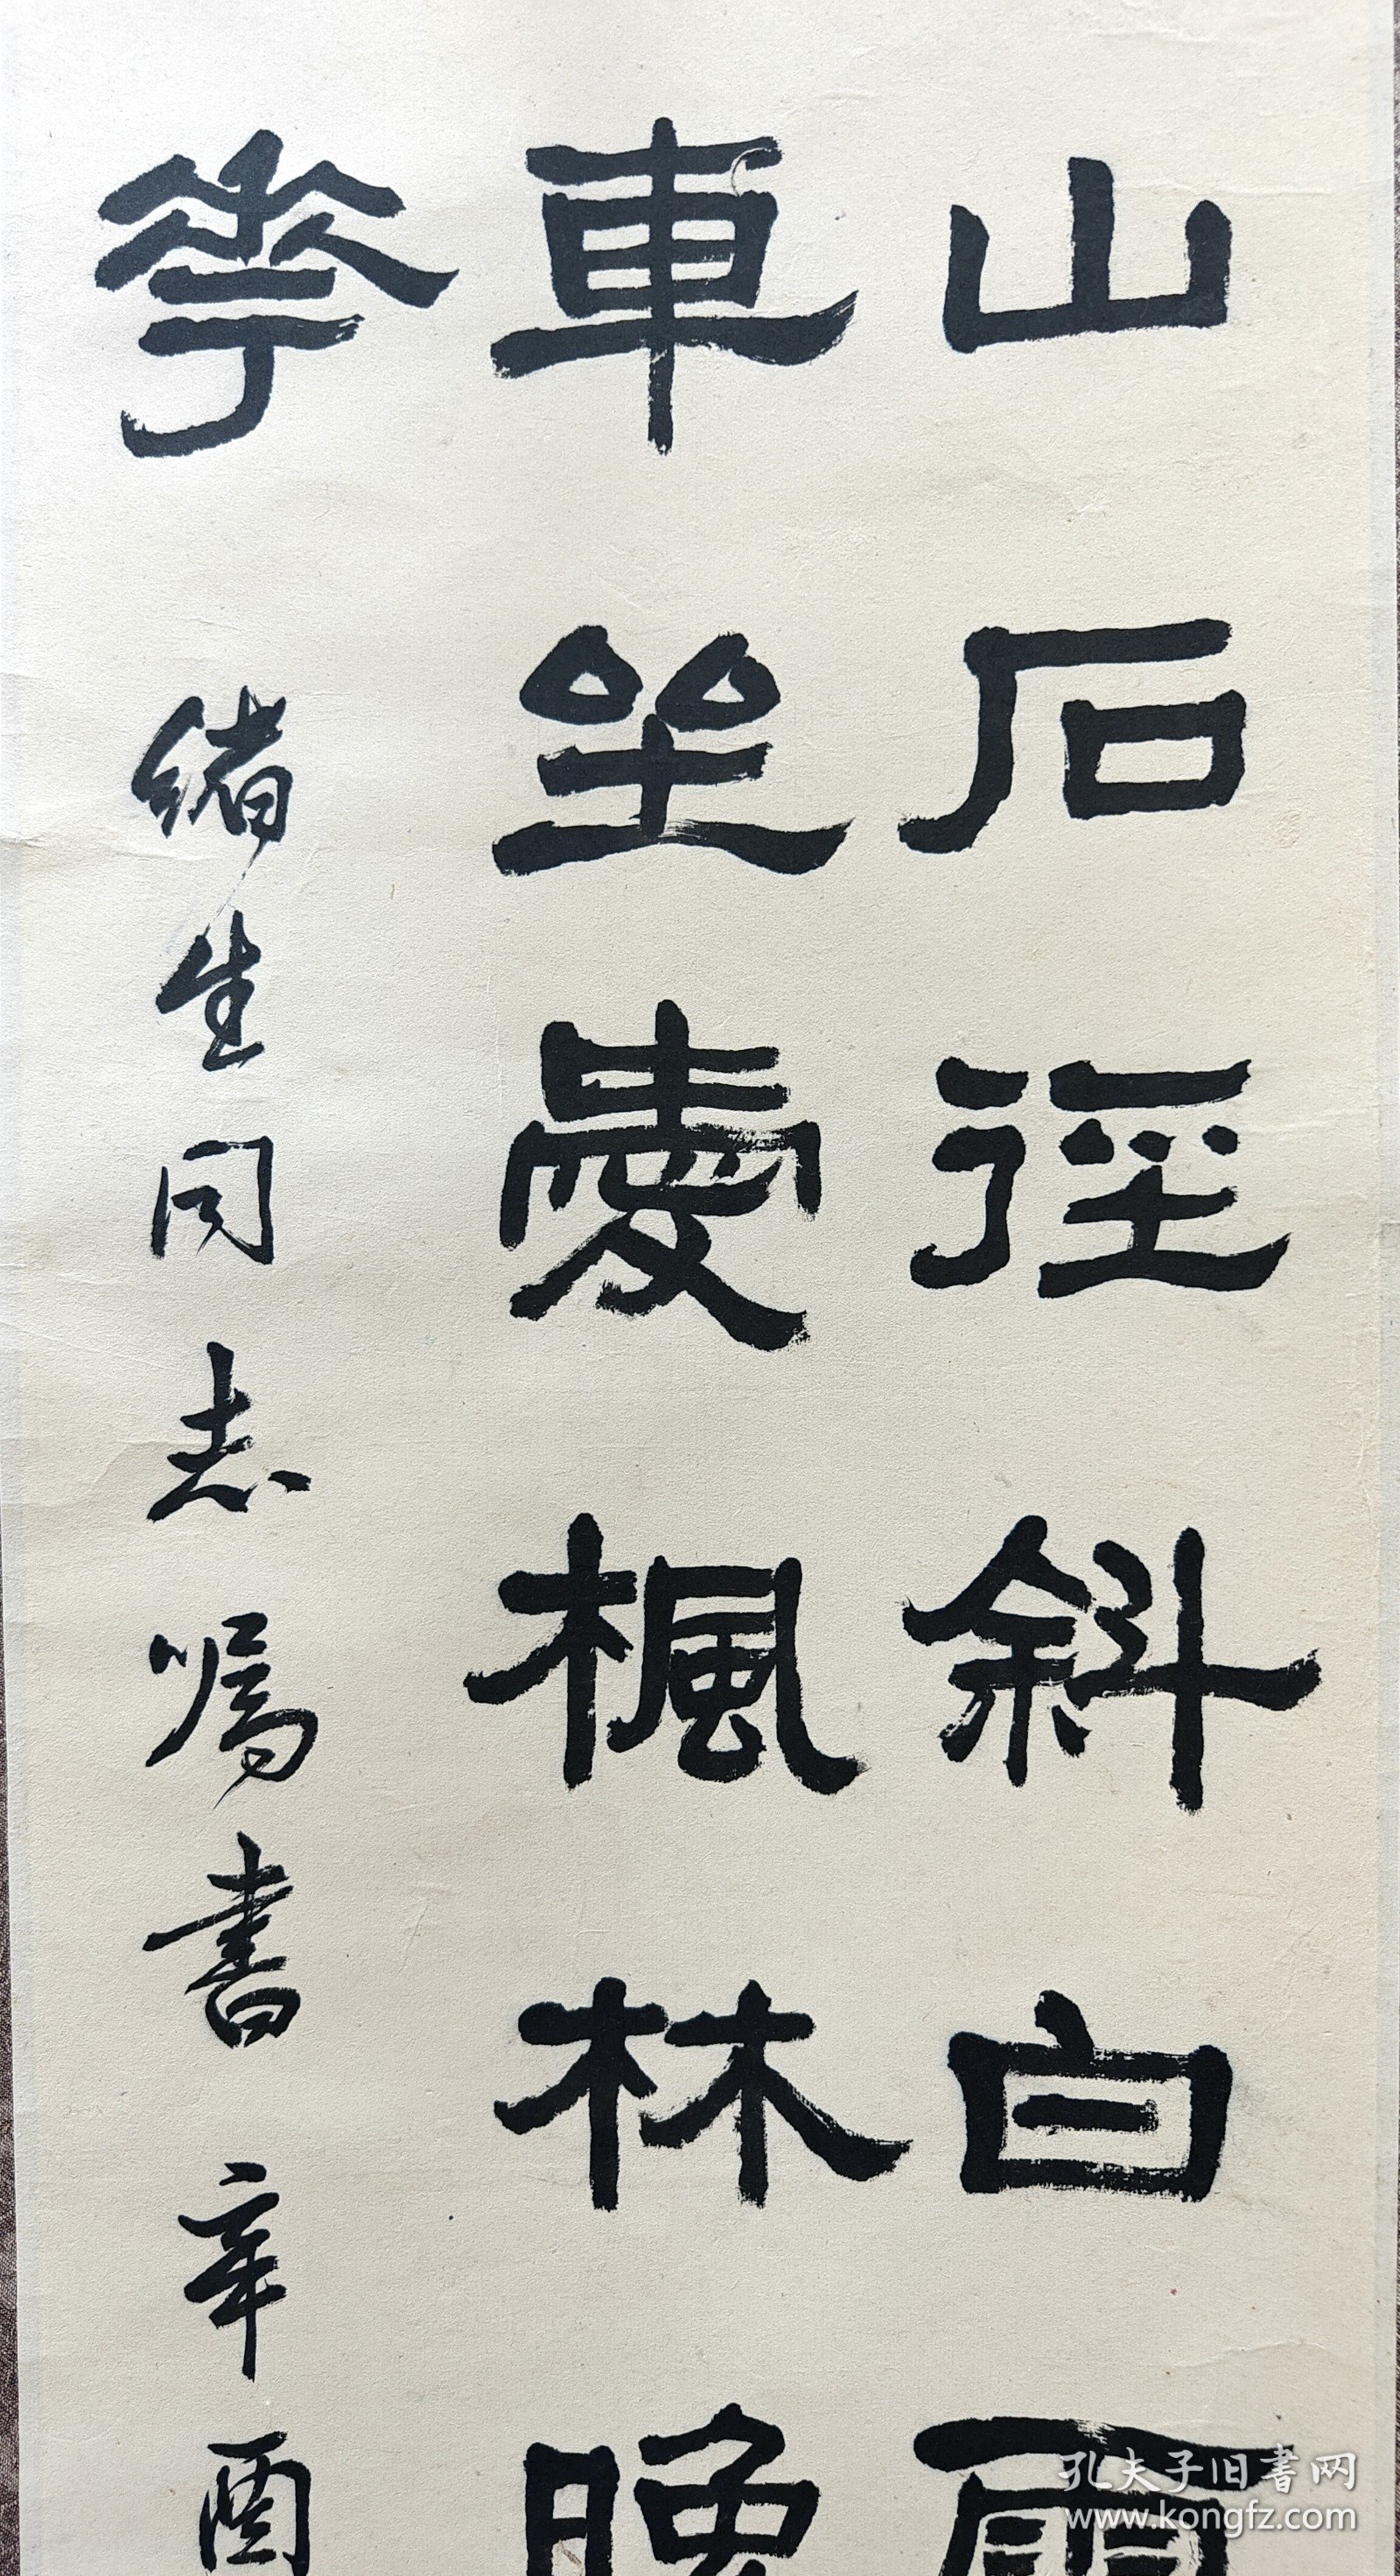 山石徑斜白
車坐愛楓林晚
華 緒生同志嘱書辛酉
孔夫子旧書网
www.kongfz.com